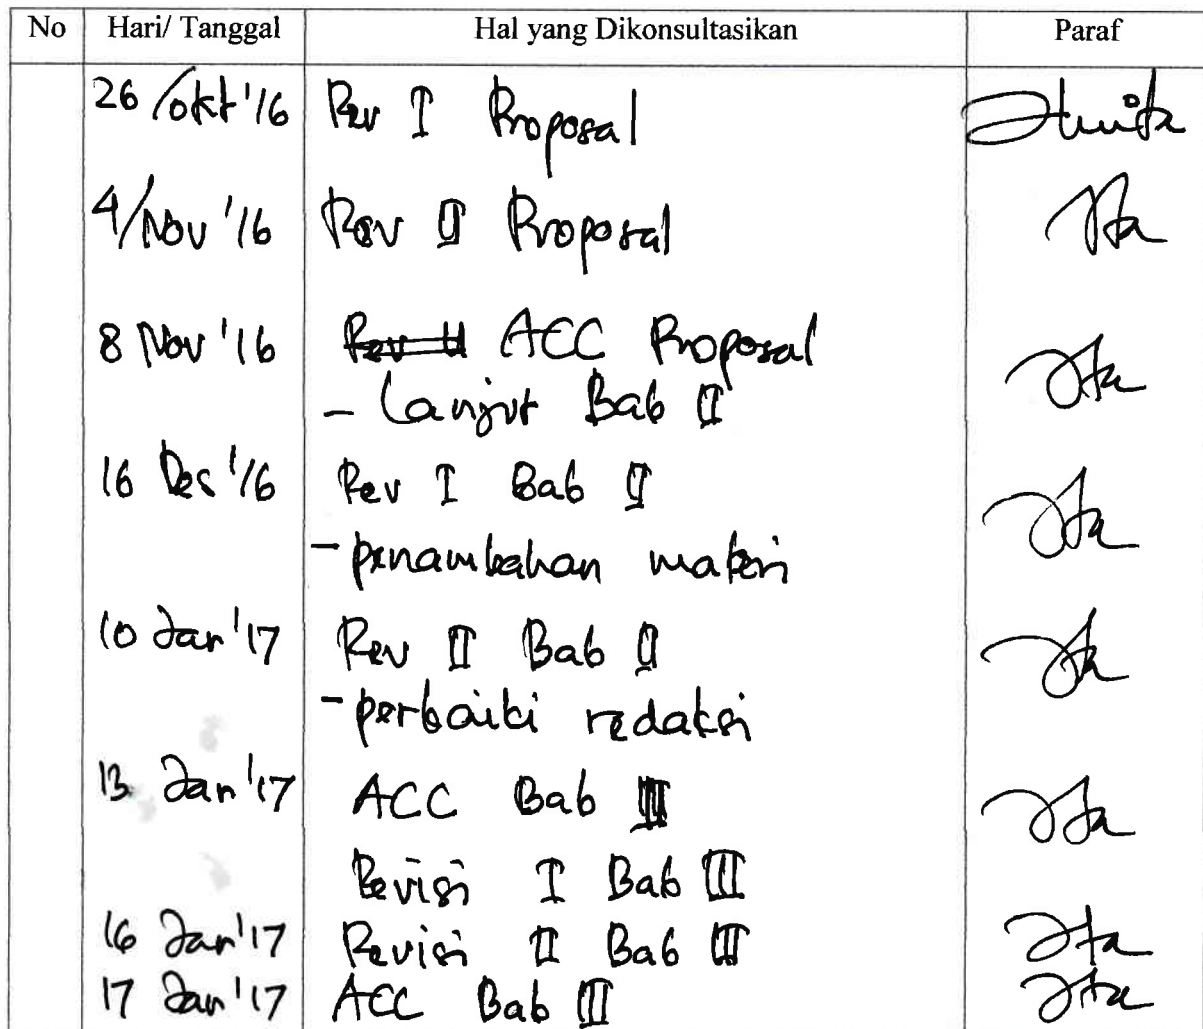 No Hari/ Tanggal Hal yang Dikonsultasikan Paraf
26/okt'16 Rev I Proposal
4/Nov '16 Rev II Proposal
8 Nov '16 Rev II ACC Proposal
- Lanjut Bab II
16 Des '16 Rev I Bab II
- penambahan materi
10 Jan '17 Rev II Bab II
- perbaiki redaksi
13 Jan '17 ACC Bab II
Revisi I Bab III
16 Jan '17 Revisi II Bab III
17 Jan '17 ACC Bab III